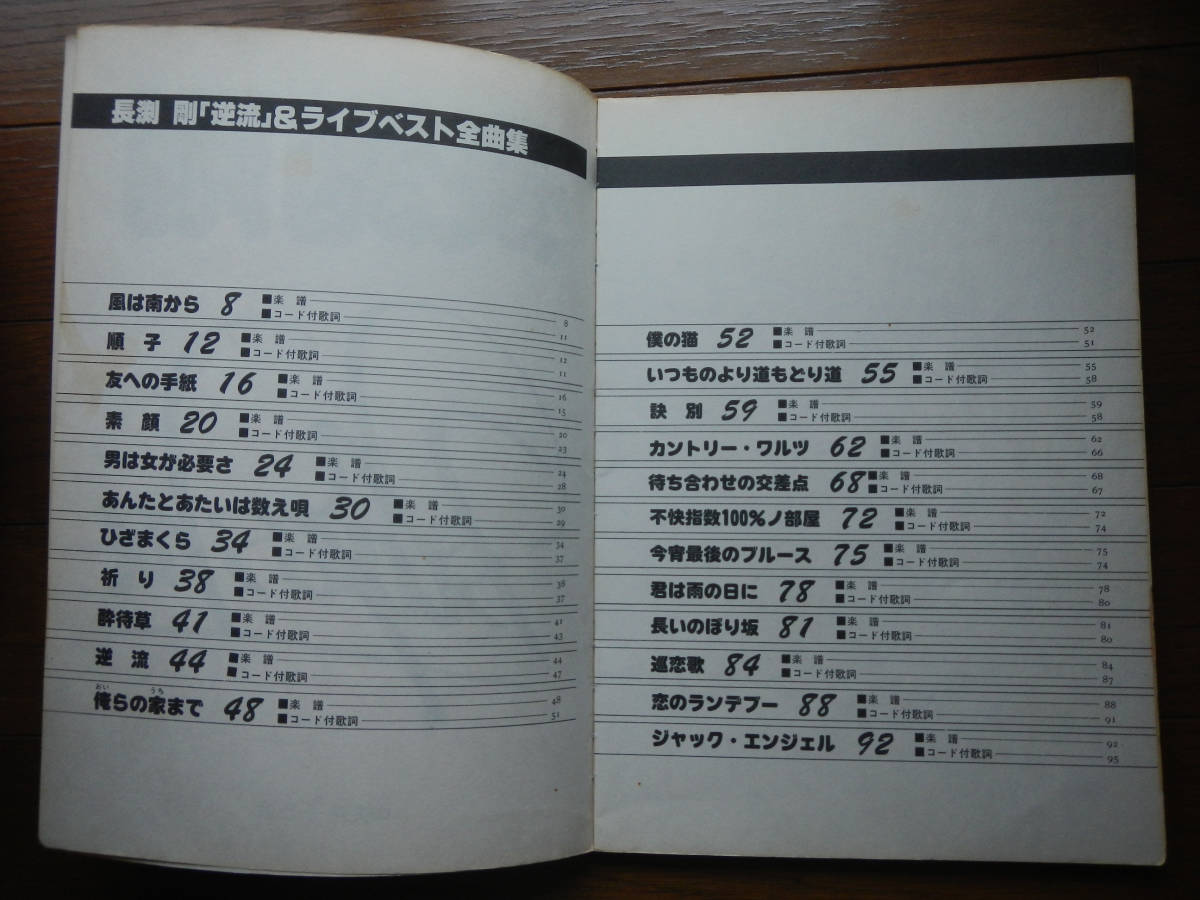 長渕 剛「逆流」&ライブベスト全曲集
風は南から 8 ■楽 譜 8
■コード付歌詞 11
順 子 12 ■楽 譜 12
■コード付歌詞 11
友への手紙 16 ■楽 譜 16
■コード付歌詞 15
素 顔 20 ■楽 譜 20
■コード付歌詞 23
男は女が必要さ 24 ■楽 譜 24
■コード付歌詞 28
あんたとあたいは数え唄 30 ■楽 譜 30
■コード付歌詞 29
ひざまくら 34 ■楽 譜 34
■コード付歌詞 37
祈 り 38 ■楽 譜 38
■コード付歌詞 37
酔待草 41 ■楽 譜 41
■コード付歌詞 43
逆 流 44 ■楽 譜 44
■コード付歌詞 47
おい うち
俺らの家まで 48 ■楽 譜 48
■コード付歌詞 51
僕の猫 52 ■楽 譜 52
■コード付歌詞 51
いつものより道もどり道 55 ■楽 譜 55
■コード付歌詞 58
訣 別 59 ■楽 譜 59
■コード付歌詞 58
カントリー・ワルツ 62 ■楽 譜 62
■コード付歌詞 66
待ち合わせの交差点 68 ■楽 譜 68
■コード付歌詞 67
不快指数100%ノ部屋 72 ■楽 譜 72
■コード付歌詞 74
今宵最後のブルース 75 ■楽 譜 75
■コード付歌詞 74
君は雨の日に 78 ■楽 譜 78
■コード付歌詞 80
長いのぼり坂 81 ■楽 譜 81
■コード付歌詞 80
巡恋歌 84 ■楽 譜 84
■コード付歌詞 87
恋のランデブー 88 ■楽 譜 88
■コード付歌詞 91
ジャック・エンジェル 92 ■楽 譜 92
■コード付歌詞 95